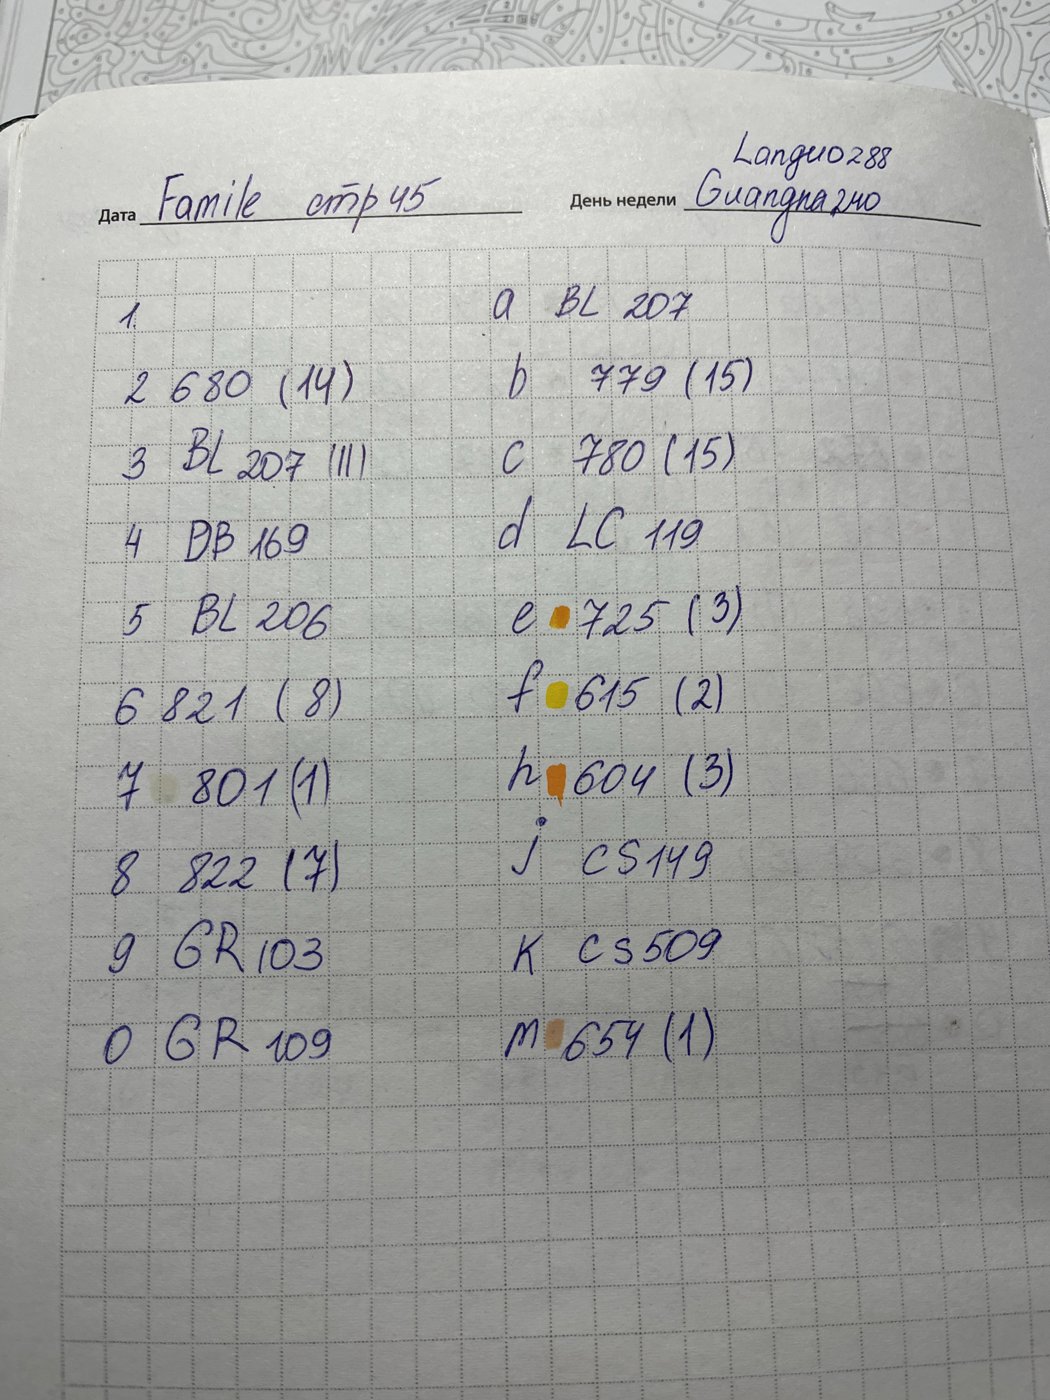 Languo288
Дата Famile стр 45
День недели Guangna240
1.
2 680 (14)
3 BL 207 (11)
4 DB 169
5 BL 206
6 821 (8)
7 801 (1)
8 822 (7)
9 GR 103
0 GR 109
a BL 207
b 779 (15)
c 780 (15)
d LC 119
e 725 (3)
f 615 (2)
h 604 (3)
j CS149
K CS509
m 654 (1)